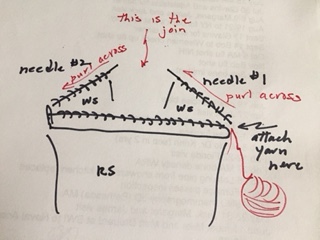 this is the
join
needle #2
purl across
needle #1
purl across
ws
ws
attach
yarn
here
RS